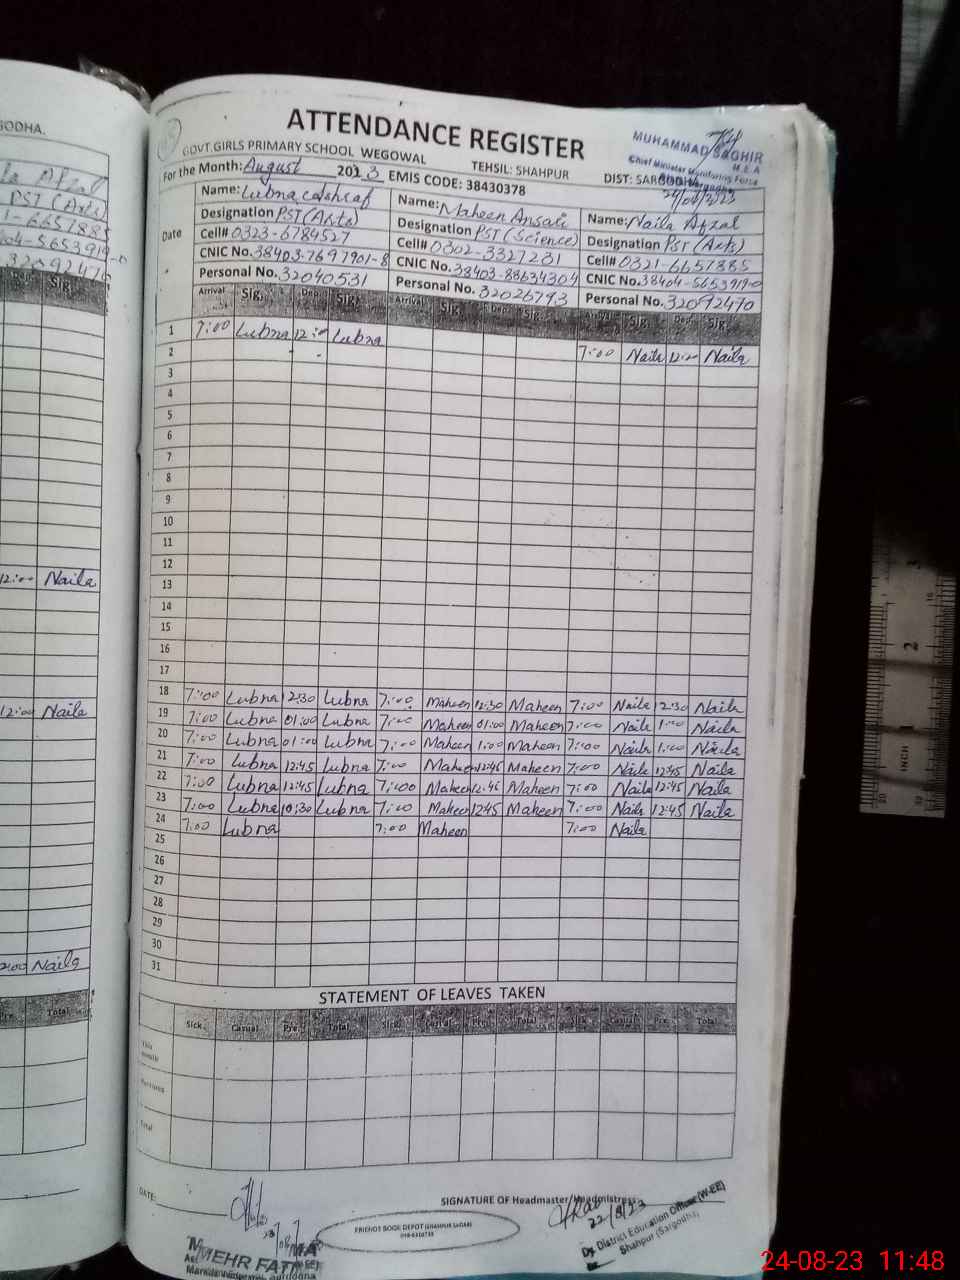 GODHA.
PST (Arts)
12:00 Naila
12:00 Naila
Naila
Pre. Total
ATTENDANCE REGISTER
MUHAMMAD SAGHIR
M.E.A
Chief Minister Monitoring Force
GOVT.GIRLS PRIMARY SCHOOL WEGOWAL TEHSIL: SHAHPUR DIST: SARGODHA
For the Month: August 2023 EMIS CODE: 38430378
Name: Lubna Ashraf Name: Maheen Ansari Name: Naila Afzal
Designation PST (Arts) Designation PST (Science) Designation PST (Arts)
Date
Cell# 0323-6784527 Cell# 0302-3327231 Cell# 0321-6657885
CNIC No. 38403-7697901-8 CNIC No. 38403-88634304 CNIC No. 38404-5653919-0
Personal No. 32040531 Personal No. 32026793 Personal No. 32092470
Arrival Sig. Dep. Sig. Arrival Sig. Dep. Sig. Arrival Sig. Dep. Sig.
1 7:00 Lubna 12:00 Lubna
2 7:00 Naila 12:00 Naila
3
4
5
6
7
8
9
10
11
12
13
14
15
16
17
18 7:00 Lubna 12:30 Lubna 7:00 Maheen 12:30 Maheen 7:00 Naila 12:30 Naila
19 7:00 Lubna 01:00 Lubna 7:00 Maheen 01:00 Maheen 7:00 Naila 1:00 Naila
20 7:00 Lubna 01:00 Lubna 7:00 Maheen 1:00 Maheen 7:00 Naila 1:00 Naila
21 7:00 Lubna 12:45 Lubna 7:00 Maheen 12:45 Maheen 7:00 Naila 12:45 Naila
22 7:00 Lubna 12:45 Lubna 7:00 Maheen 12:45 Maheen 7:00 Naila 12:45 Naila
23 7:00 Lubna 10:30 Lubna 7:00 Maheen 12:45 Maheen 7:00 Naila 12:45 Naila
24 7:00 Lubna 7:00 Maheen 7:00 Naila
25
26
27
28
29
30
31
STATEMENT OF LEAVES TAKEN
Sick. Casual Pre. Total Sick. Casual Pre. Total Sick Casual Pre. Total
This month
Previous
Total
DATE: SIGNATURE OF Headmaster/Headmistress
22/8/23
FRIENDS BOOK DEPOT (SHAHPUR SADAR)
Dy. District Education Officer (W-EE)
Shahpur (Sargodha)
MEHR FATIMA
INCH
24-08-23 11:48